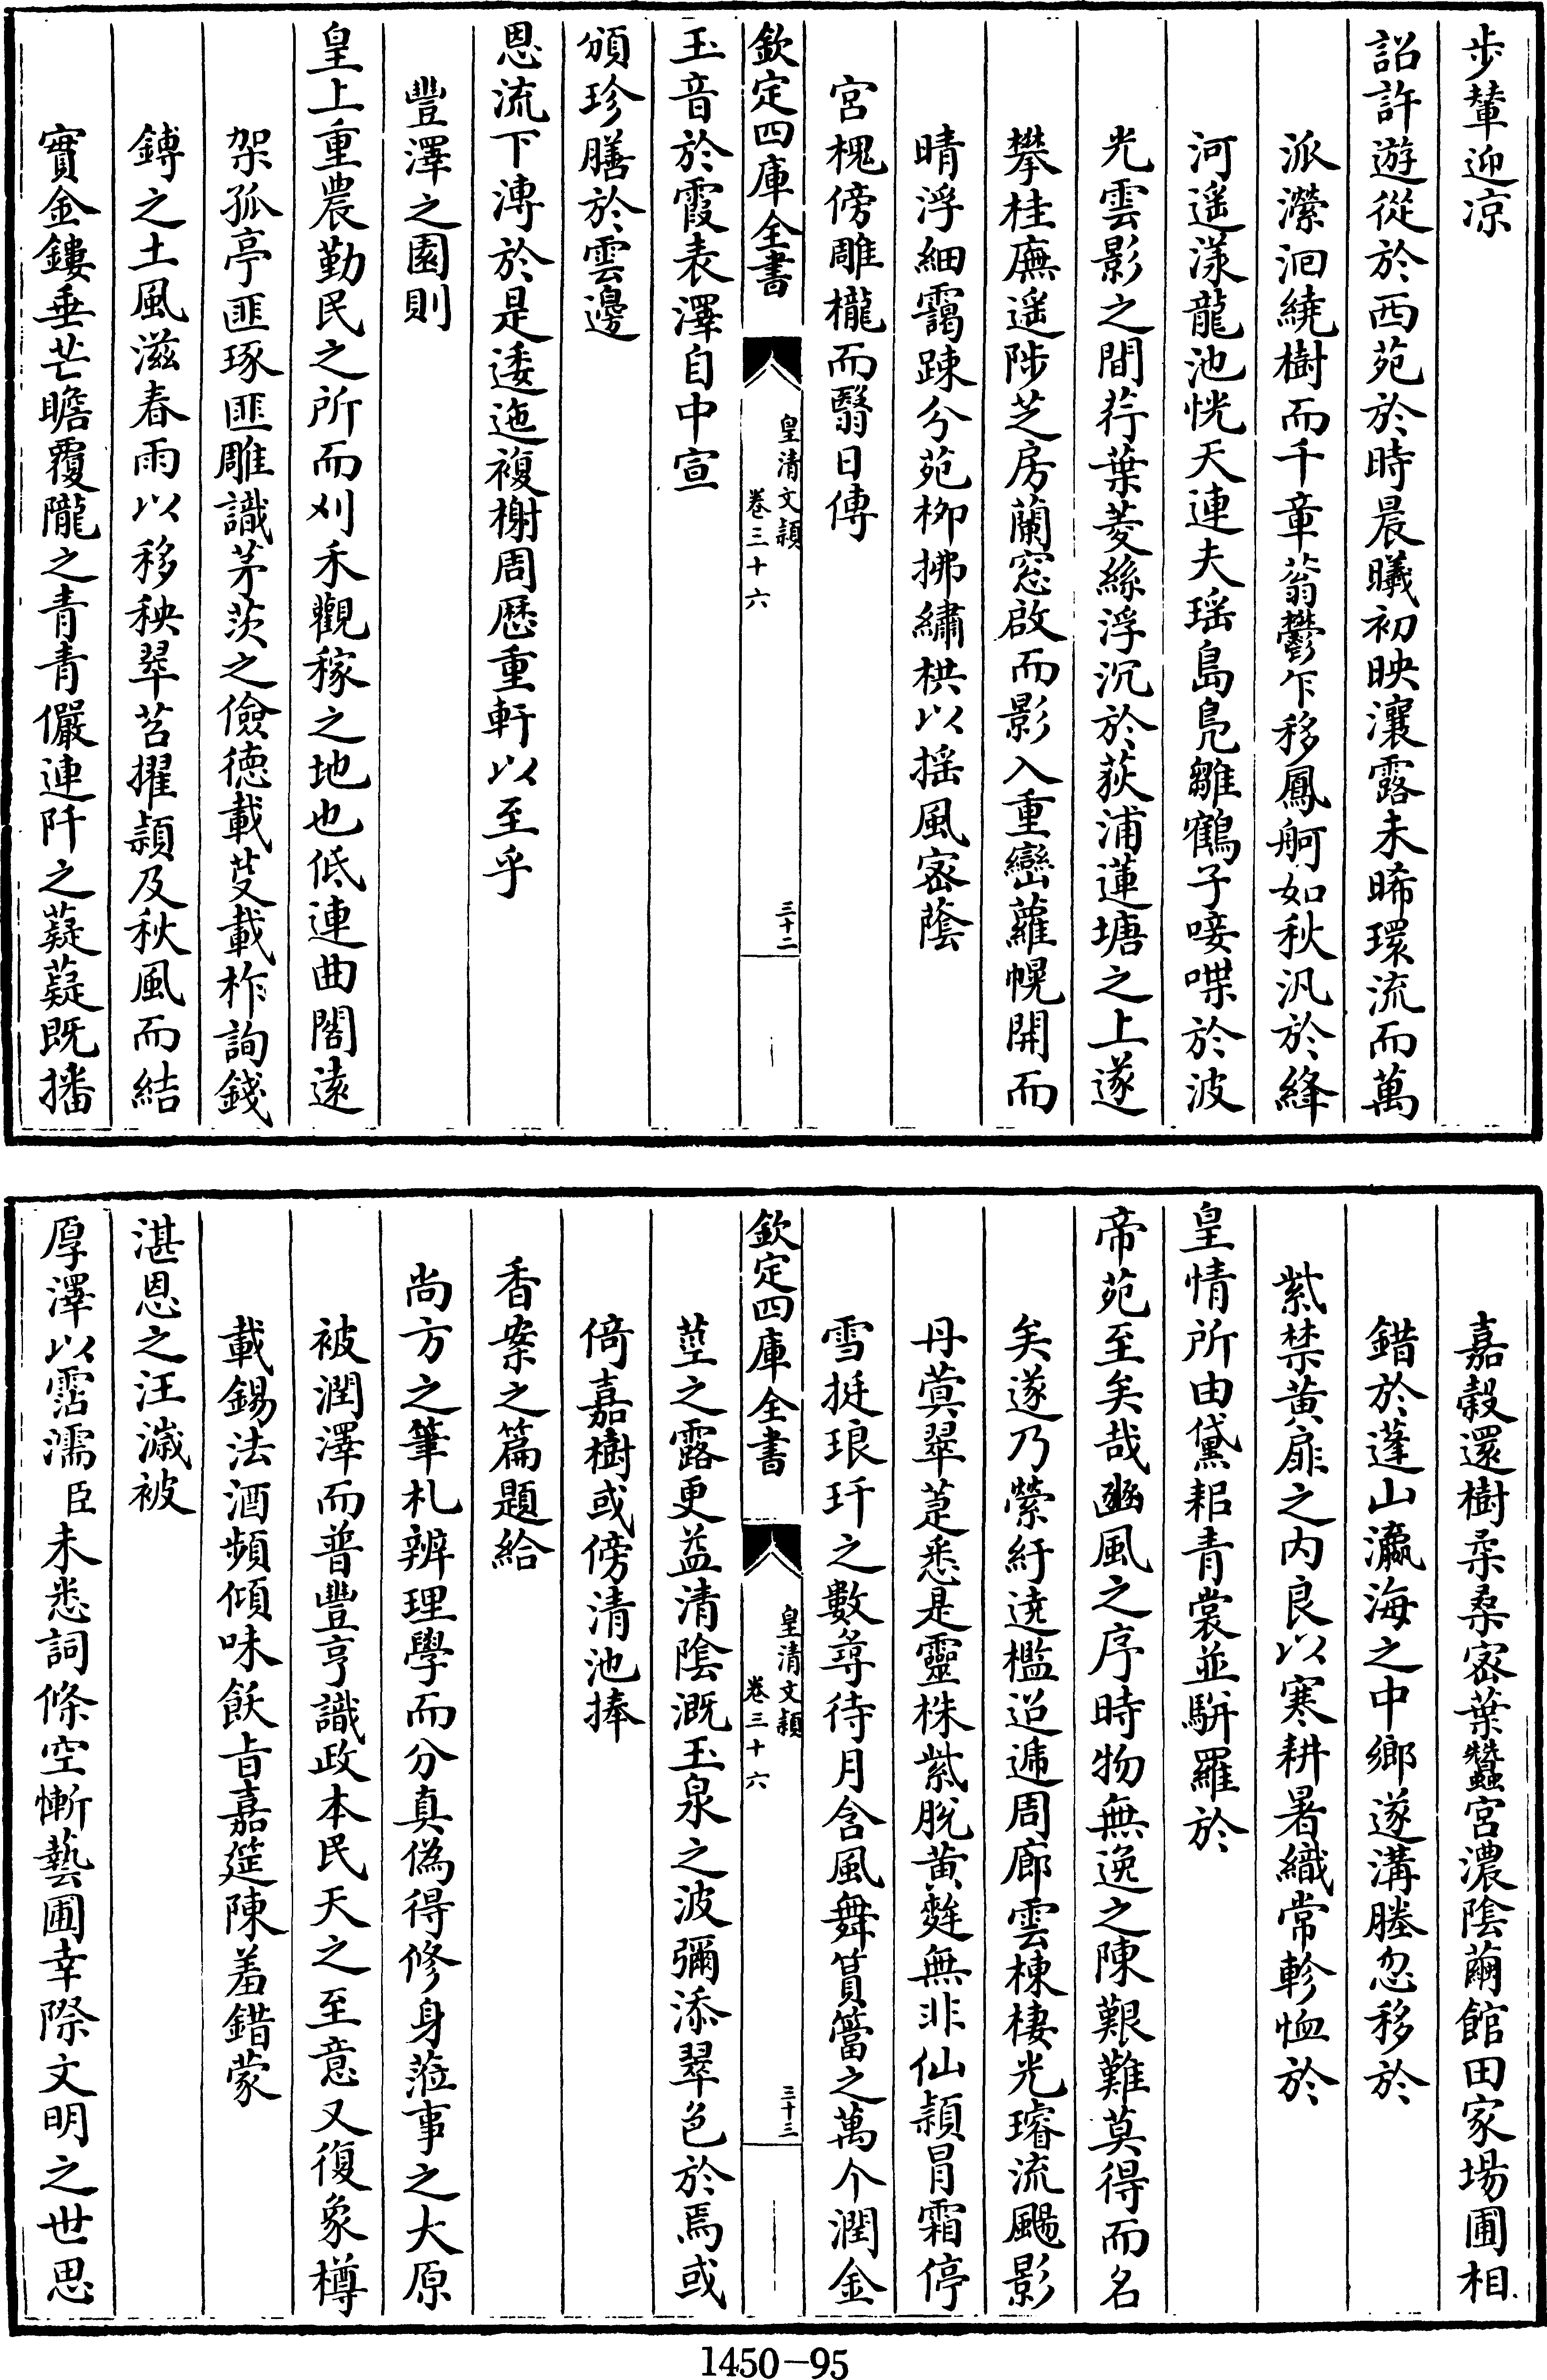 步輦迎凉
詔許遊從於西苑於時晨曦初映瀼露未晞環流而萬
派瀠洄繞樹而千章蓊鬱乍移鳳舸如秋汎於絳
河遥漾龍池恍天連夫瑶島鳧雛鶴子唼喋於波
光雲影之間荇葉菱絲浮沉於荻浦蓮塘之上遂
攀桂廡遥陟芝房蘭窓啟而影入重巒蘿幌開而
晴浮細靄踈分苑栁拂繡栱以揺風宻蔭
宮槐傍雕櫳而翳日傳
欽定四庫全書
皇清文頴
卷三十六
三十二
玉音於霞表澤自中宣
頒珍膳於雲邊
恩流下溥於是逶迤複榭周歴重軒以至乎
豐澤之園則
皇上重農勤民之所而刈禾觀稼之地也低連曲閣遠
架孤亭匪琢匪雕識茅茨之儉徳載芟載柞詢錢
鎛之土風滋春雨以移秧翠苕擢頴及秋風而結
實金鏤垂芒瞻覆隴之青青儼連阡之薿薿既播
嘉穀還樹柔桑宻葉蠶宮濃陰繭館田家場圃相
錯於蓬山瀛海之中鄉遂溝塍忽移於
紫禁黄扉之内良以寒耕暑織常軫恤於
皇情所由黛耜青裳並駢羅於
帝苑至矣哉豳風之序時物無逸之陳艱難莫得而名
矣遂乃縈紆遶檻迢遞周廊雲棟棲光璿流颺影
丹蓂翠萐悉是靈株紫脱黄蕤無非仙頴冐霜停
雪挺琅玕之數尋待月含風舞篔簹之萬个潤金
欽定四庫全書
皇清文頴
卷三十六
三十三
莖之露更益清陰溉玉泉之波彌添翠色於焉或
倚嘉樹或傍清池捧
香案之篇題給
尚方之筆札辨理學而分真偽得修身蒞事之大原
被潤澤而普豐亨識政本民天之至意又復象樽
載錫法酒頻傾味飫㫖嘉筵陳羞錯蒙
湛恩之汪濊被
厚澤以霑濡臣未悉詞條空慚藝圃幸際文明之世思
1450-95